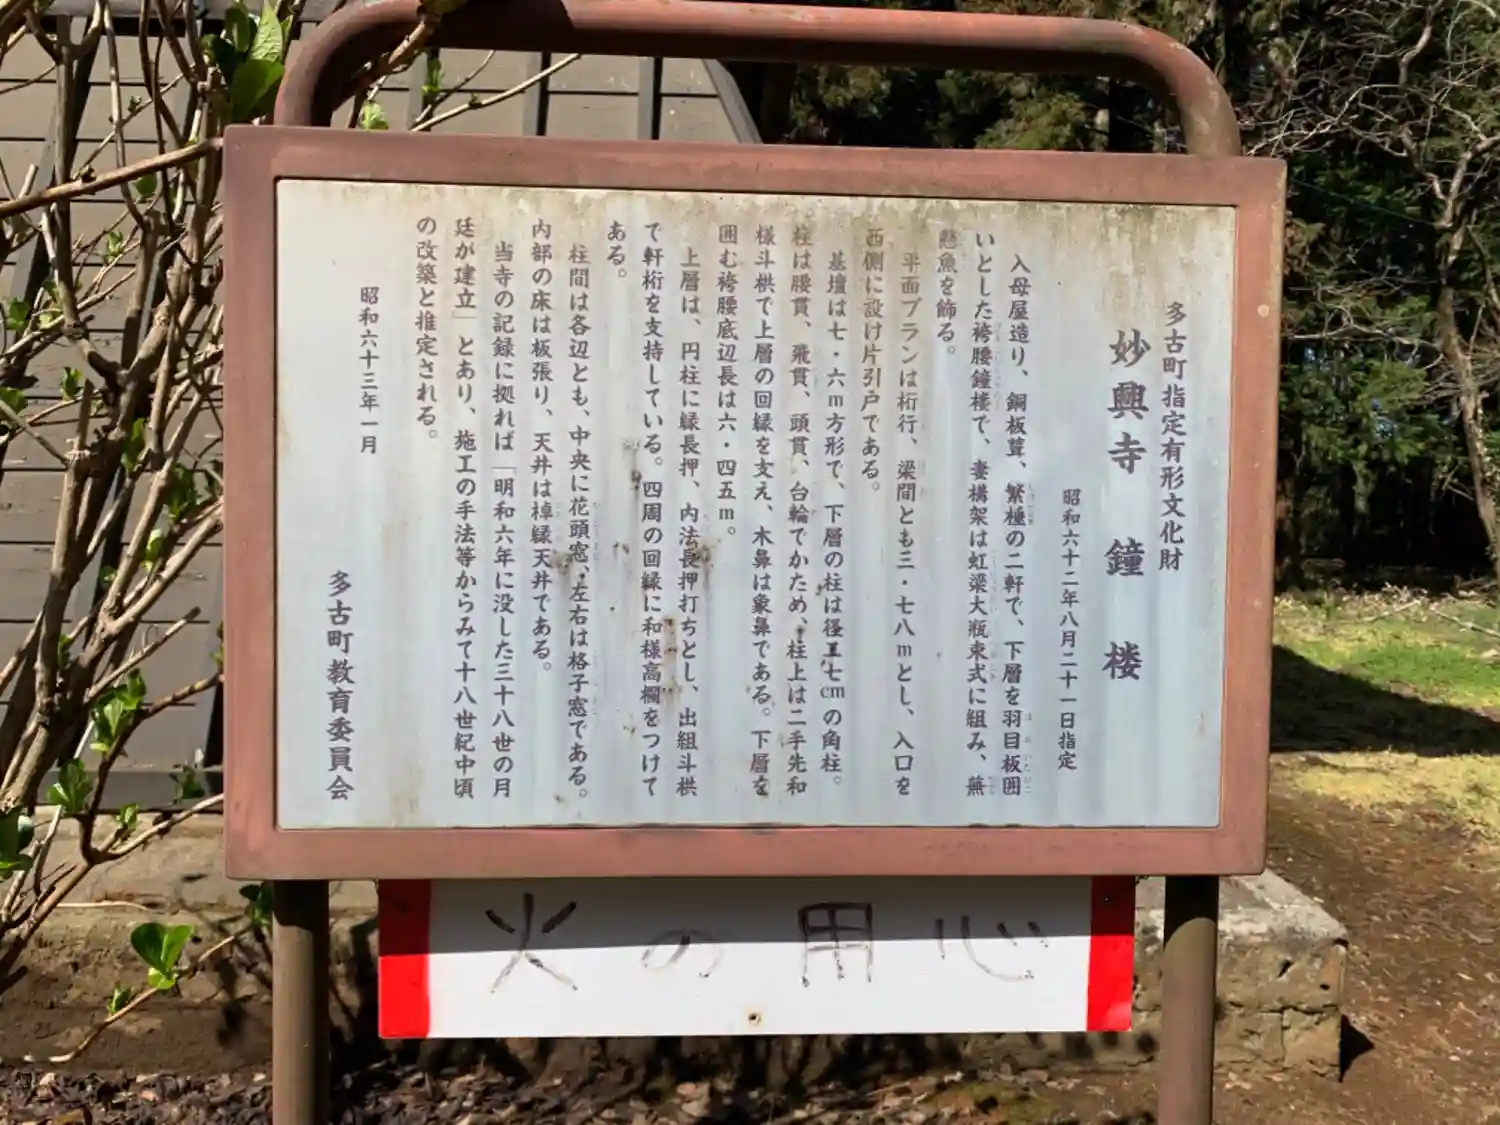 多古町指定有形文化財
妙興寺 鐘楼
昭和六十二年八月二十一日指定
入母屋造り、銅板葺、繁棰の二軒で、下層を羽目板囲
いとした袴腰鐘楼で、妻構架は虹梁大瓶束式に組み、蕪
懸魚を飾る。
平面プランは桁行、梁間とも三・七八mとし、入口を
西側に設け片引戸である。
基壇は七・六m方形で、下層の柱は径 七cmの角柱。
柱は腰貫、飛貫、頭貫、台輪でかため、柱上は二手先和
様斗栱で上層の回縁を支え、木鼻は象鼻である。下層を
囲む袴腰底辺長は六・四五m。
上層は、円柱に縁長押、内法長押打ちとし、出組斗栱
で軒桁を支持している。四周の回縁に和様高欄をつけて
ある。
柱間は各辺とも、中央に花頭窓、左右は格子窓である。
内部の床は板張り、天井は棹縁天井である。
当寺の記録に拠れば「明和六年に没した三十八世の月
廷が建立」とあり、施工の手法等からみて十八世紀中頃
の改築と推定される。
昭和六十三年一月
多古町教育委員会
火の用心